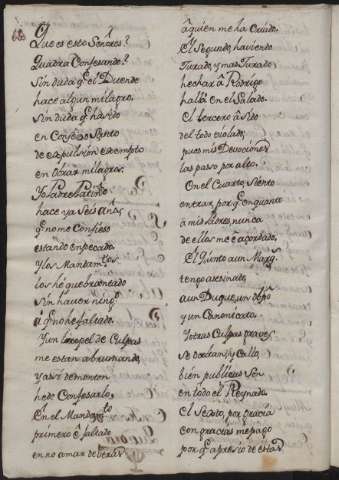 Que es esto Señores?
Quadra Confesando?
Sin duda q.e el Duende
hace algun milagro,
Sin duda q.e ha sido
en Consejo
de expulsion exempto
en obrar milagros.
Yo
hace ya Seis años,
q.e no me Confieso
estando en pecado.
Y los Mandam.tos
los hé quebrantado
sin haver
â q.e no he faltado.
Y un tropel de Culpas
me estan abrumando,
y assi de monton
he de Confesarlo,
En el Mandam.to
primero é faltado
en no amar de veras
â quien me ha Criado.
El Segundo, haviendo
Jurado, y mas Jurado
hechar â Rodrigo
hallá en el Salado.
El tercero â sido
del todo violado,
pues mis Devociones
las passo por alto.
En el Cuarto, Siento
entrar, por q.e en quanto
à mis Padres, nunca
de ellos me é acordado.
El Quinto a un Marq.s
tengo asesinado,
a un Duque, un obpô
y un Canonicato.
Y otras Culpas graves
se dexan, y Callo,
bien publicas Son
en todo el Reynado.
El Sexto, por gracia
con gracias me pago
por q.e a precio de estas